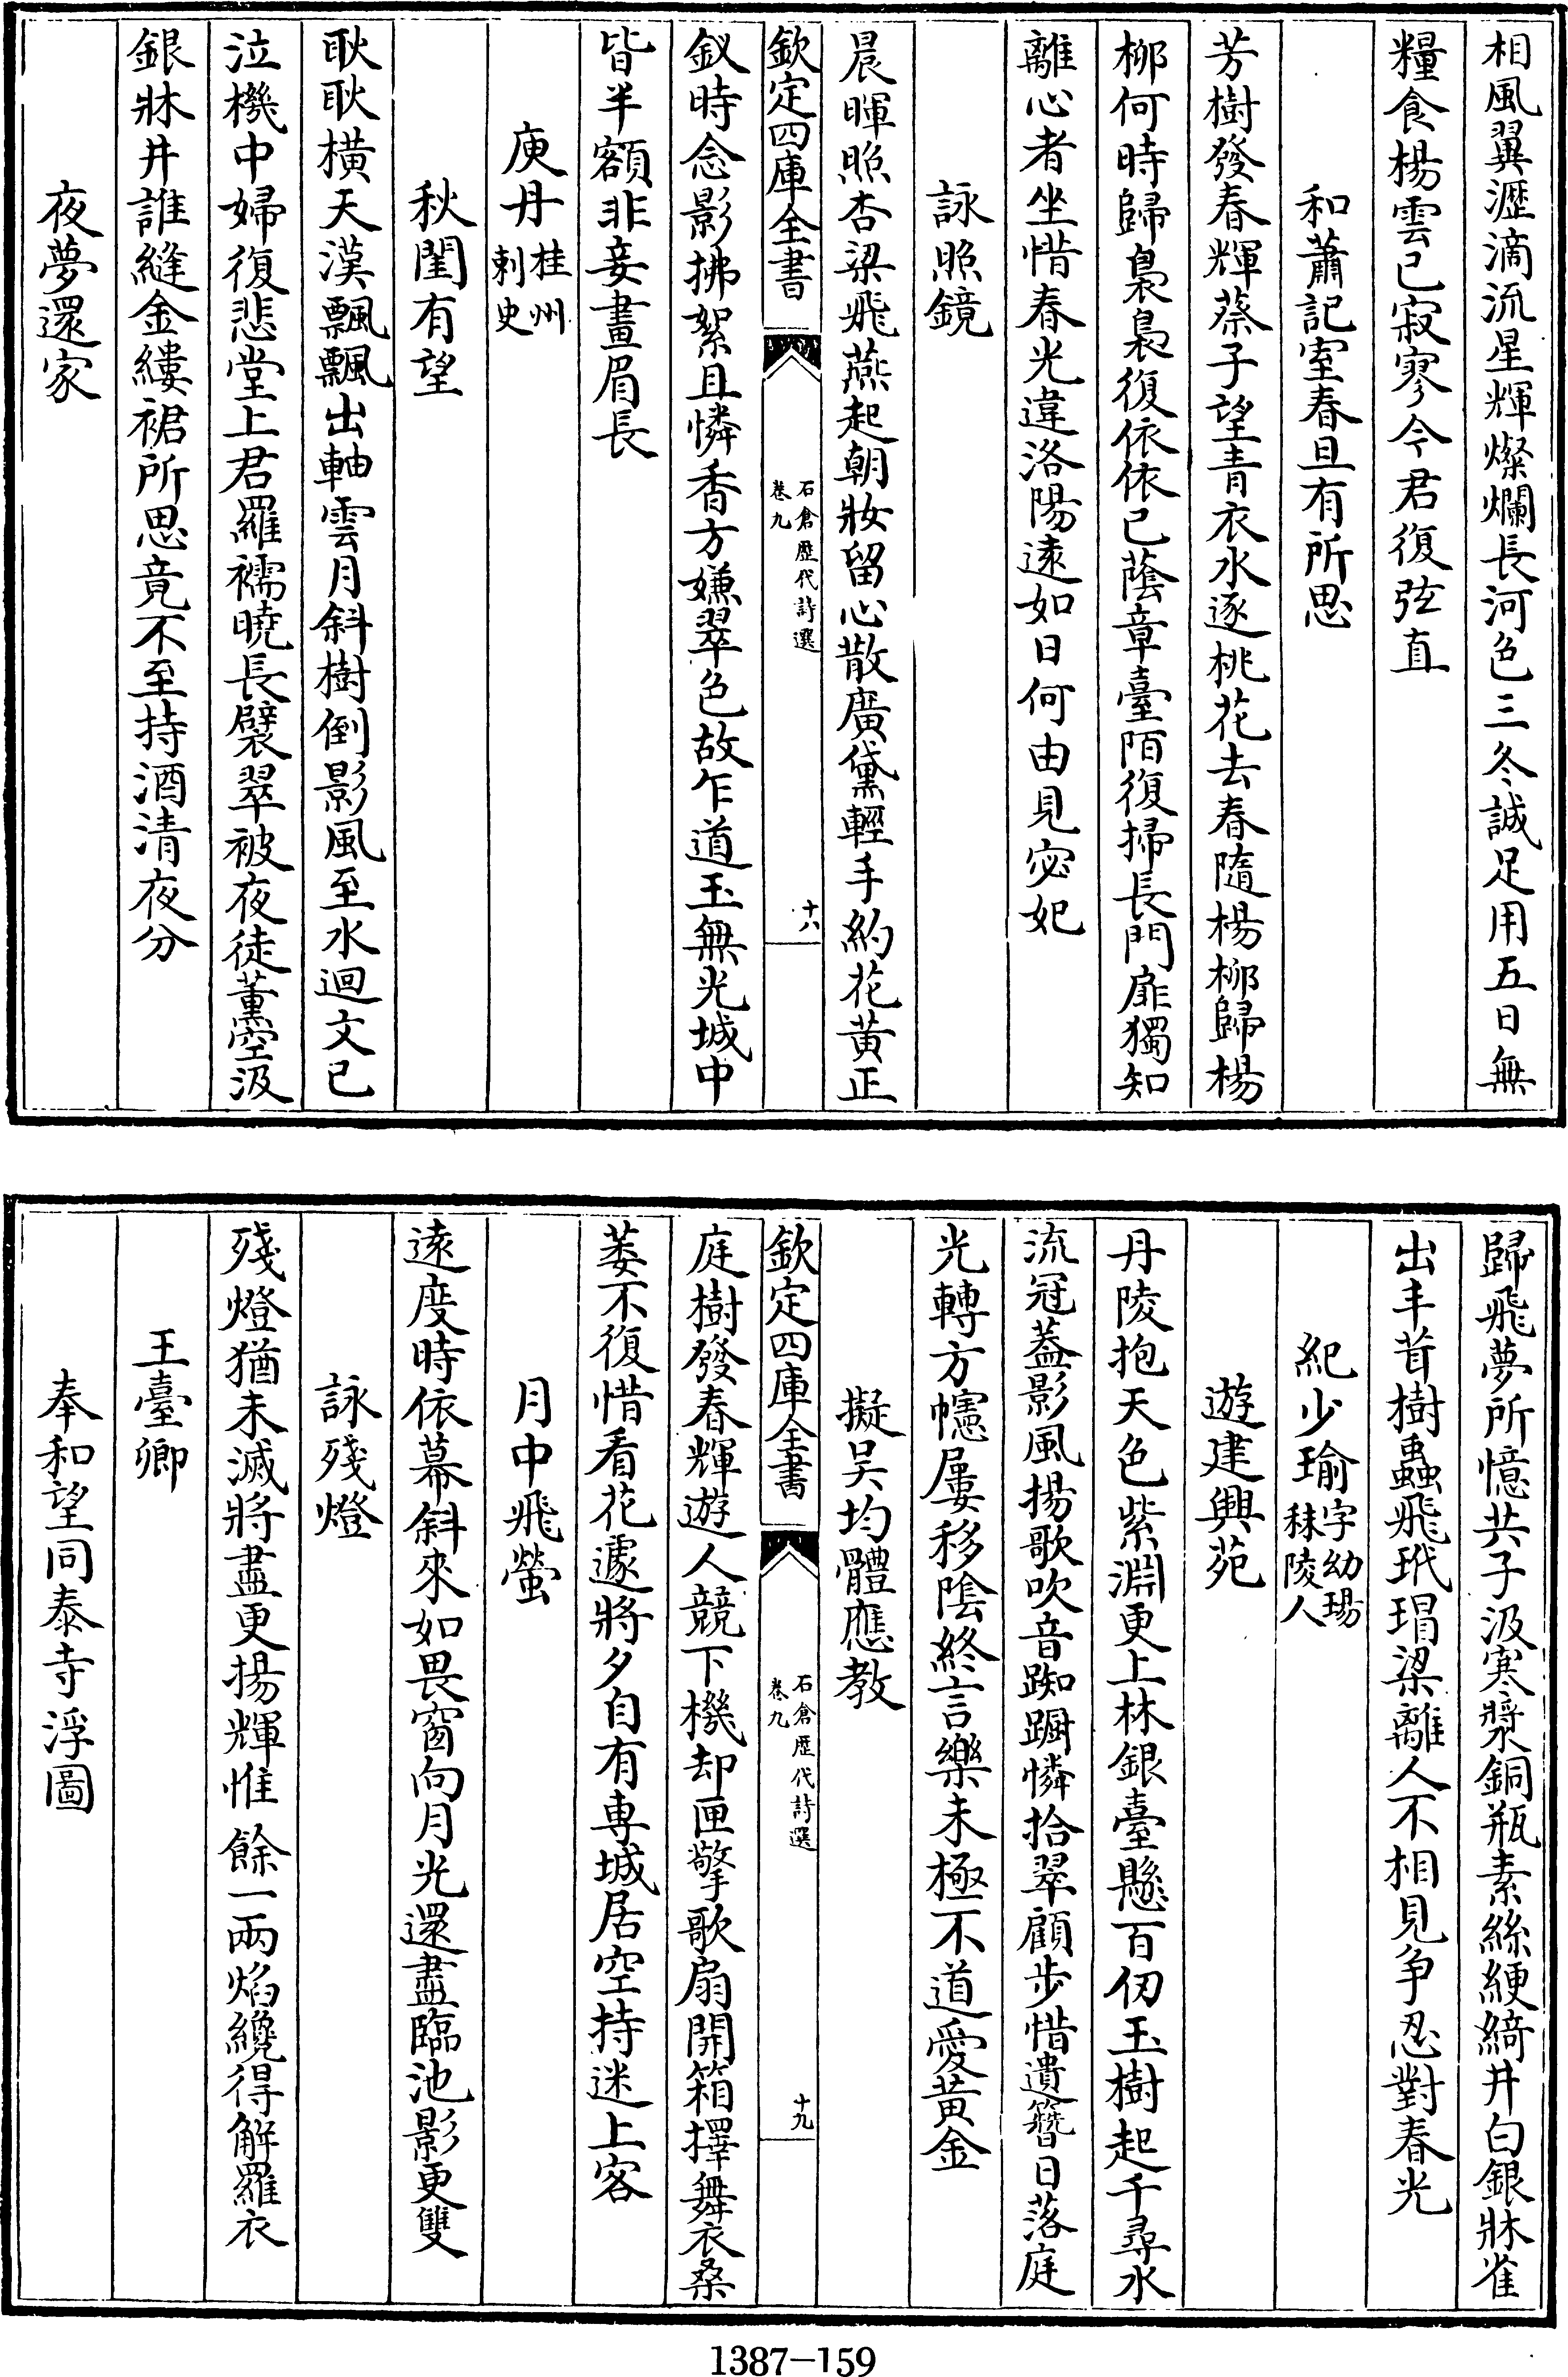 相風翼瀝滴流星輝燦爛長河色三冬誠足用五日無
糧食楊雲已寂寥今君復弦直
和蕭記室春旦有所思
芳樹發春輝蔡子望青衣水逐桃花去春隨楊柳歸楊
柳何時歸裊裊復依依已蔭章臺陌復掃長門扉獨知
離心者坐惜春光違洛陽遠如日何由見宓妃
詠照鏡
晨暉照杏梁飛燕起朝妝留心散廣黛輕手約花黃正
欽定四庫全書
石倉歷代詩選
卷九
十八
釵時念影拂絮且憐香方嫌翠色故乍道玉無光城中
皆半額非妾畫眉長
庾丹桂州刺史
秋閨有望
耿耿橫天漢飄飄出軸雲月斜樹倒影風至水迴文已
泣機中婦復悲堂上君羅襦曉長襞翠被夜徒薰空汲
銀牀井誰縫金縷裙所思竟不至持酒清夜分
夜夢還家
歸飛夢所憶共子汲寒漿銅瓶素絲綆綺井白銀牀雀
出丰茸樹蟲飛玳瑁梁離人不相見爭忍對春光
紀少瑜字幼瑒秣陵人
遊建興苑
丹陵抱天色紫淵更上林銀臺懸百仞玉樹起千尋水
流冠蓋影風揚歌吹音踟躕憐拾翠顧步惜遺簪日落庭
光轉方幰屢移陰終言樂未極不道愛黃金
擬吳均體應教
欽定四庫全書
石倉歷代詩選
卷九
十九
庭樹發春輝遊人競下機却匣擎歌扇開箱擇舞衣桑
萎不復惜看花遽將夕自有專城居空持迷上客
月中飛螢
遠度時依幕斜來如畏窗向月光還盡臨池影更雙
詠殘燈
殘燈猶未滅將盡更揚輝惟餘一兩焰纔得解羅衣
王臺卿
奉和望同泰寺浮圖
1387-159